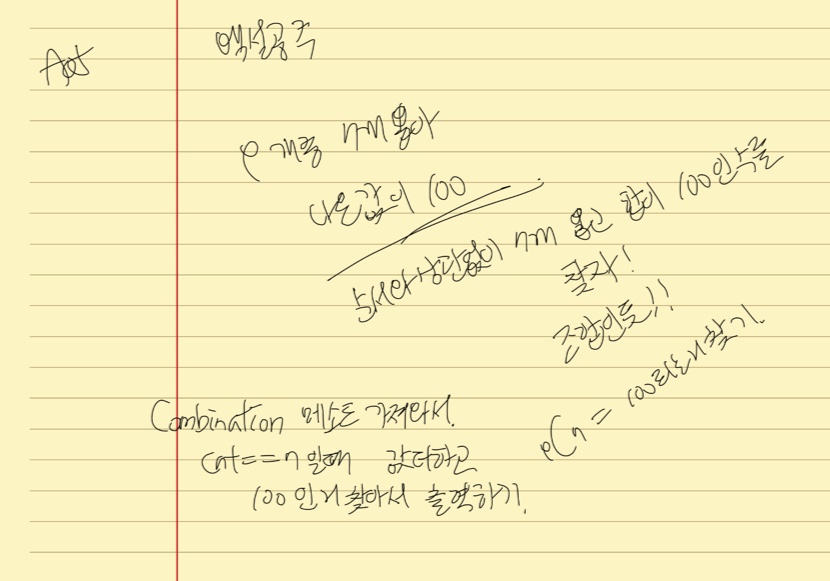 백설공주
9 개중 뽑아
나온값이 100
순서와 상관없이 뽑고 합이 100인 수를
찾자!
조합인듯!!
9C7 = 100되는거 찾기.
Combination 메소드 가져와서.
cnt==7 일때 값더하고
100인거 찾아서 출력하기.